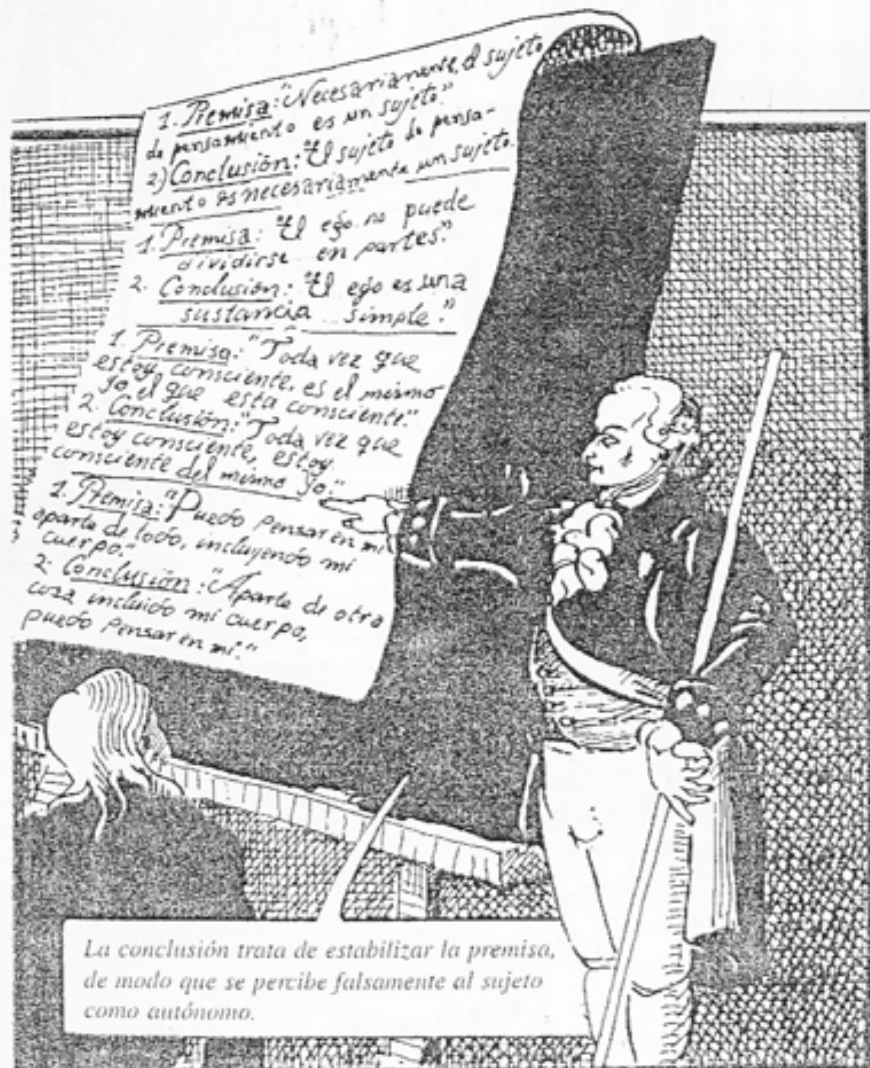 1. Premisa: "Necesariamente, el sujeto
de pensamiento es un sujeto."
2) Conclusión: "El sujeto de pensa-
miento es necesariamente un sujeto.
1. Premisa: "El ego no puede
dividirse en partes."
2. Conclusión: "El ego es una
sustancia simple."
1. Premisa: "Toda vez que
estoy consciente, es el mismo
yo el que esta consciente."
2. Conclusión: "Toda vez que
estoy consciente, estoy
consciente del mismo yo."
1. Premisa: "Puedo pensar en mi
aparte de todo, incluyendo mi
cuerpo."
2. Conclusión: "Aparte de otra
cosa incluido mi cuerpo,
puedo pensar en mi."
La conclusión trata de estabilizar la premisa,
de modo que se percibe falsamente al sujeto
como autónomo.